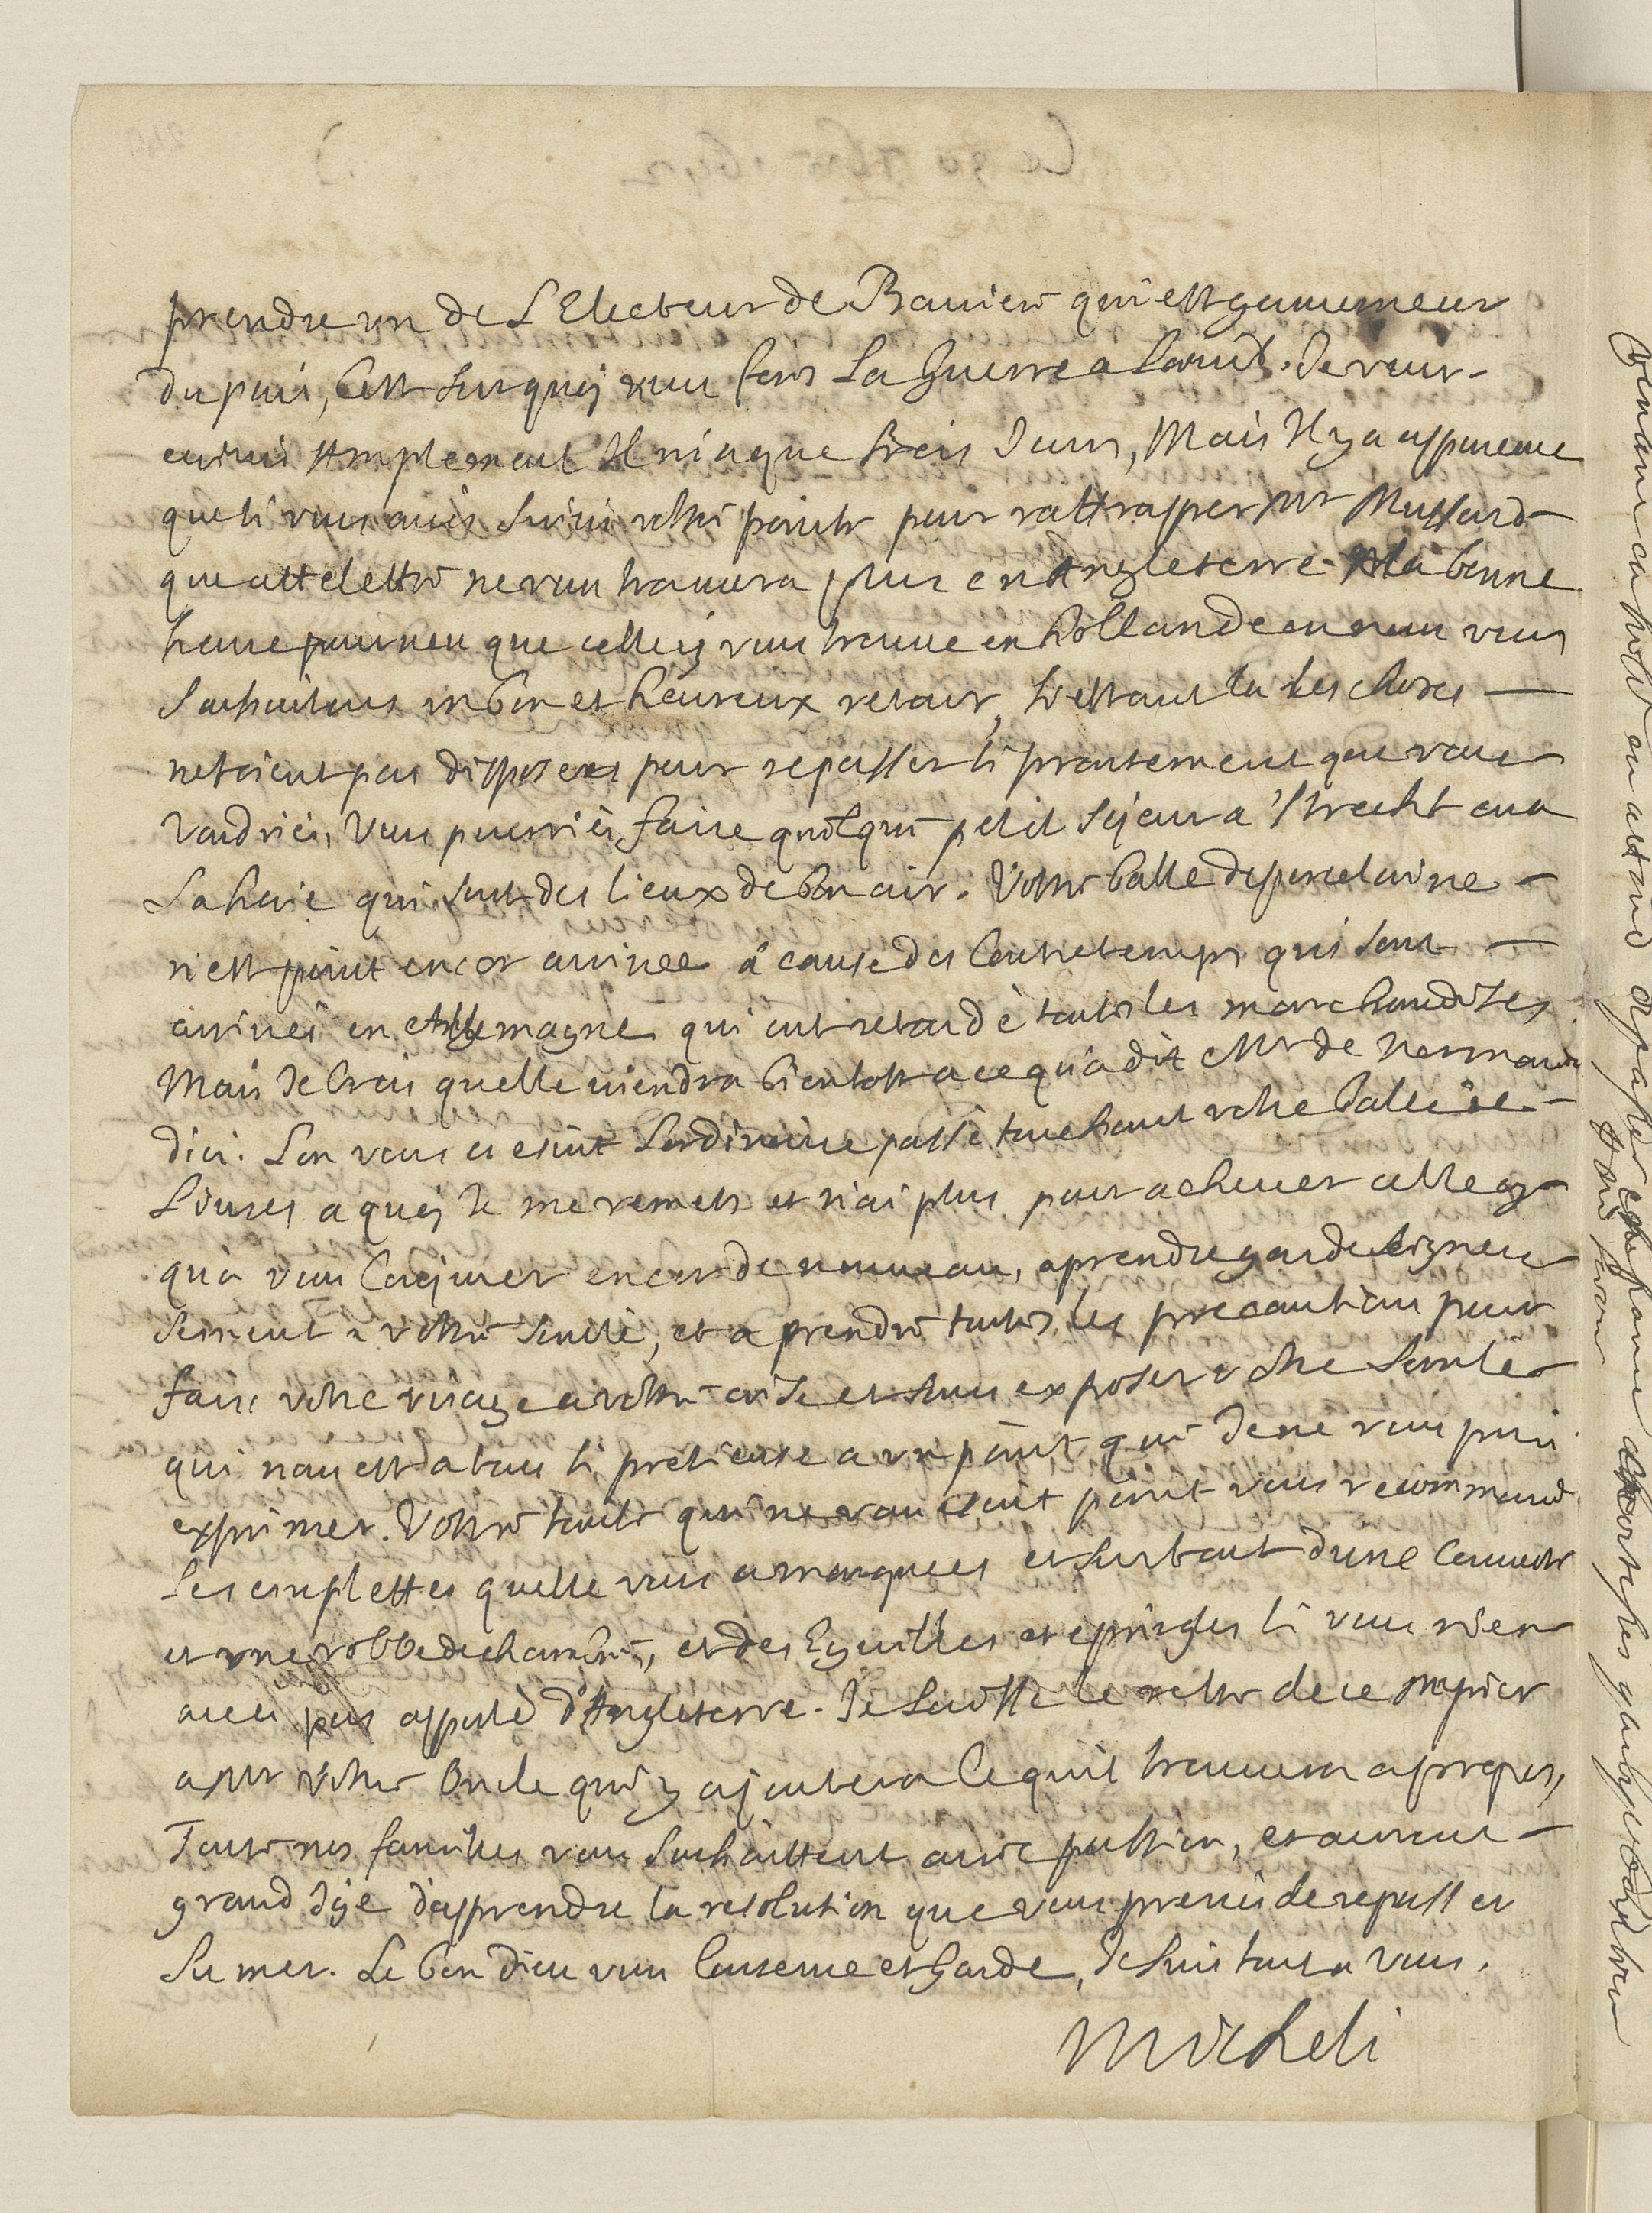 prendre un de L'Electeur de Bauiere qui est gouuerneur
du païs, C'est surquoy vous ferés La guerre a L'oeuil. Je vous
escriuis Amplement Il n'i a que trois Jours, Mais Il y a apparence
que si vous aués suiui vostre pointe pour rattrapper Mr Mussard
que cette lettre ne vous trouuera plus en Angleterre. A la bonne
heure pourueu que celle cy vous trouue en hollande ou nous vous
souhaitons un bon et heureux retour, si estant la les choses
netoient pas disposees pour repasser si prontement que vous
voudriés, vous pourriés faire quelque petit sejour a Utrecht ou a
La haie qui sont des lieux de bon air. Vostre balle de porcelaine
n'est point encor arriuee à cause des Contretemps qui sont
arriués en Allemagne qui ont retardé toutes les marchandises
Mais Je Crois quelle viendra bientost a ce qu'a dit Mr de Normandie
d'ici. L'on vous a escrit L'ordinaire passé touchant votre balle de
Liures a quoy Je me remets et n'ai plus pour acheuer celle cy
qu'a vous Conjurer encor de nouueau, a prendre garde soigneu
sement a vostre santé, et a prendre toutes les precautions pour
faire votre voiage a vostre aise et sans exposer votre santé
qui nous est a tous si pretieuse a un point que Je ne vous puis
exprimer. Vostre tante qui ne vous escrit point vous recommande
Les emplettes quelle vous a marquees et surtout d'une Couuerte
et une robbe de chambre, et des Eguilles et epingles si vous n'en
aués pas apporté d'Angleterre. Je Laisse le reste de ce papier
a Mr vostre Oncle qui y ajoutera Ce qu'il trouuera a propos,
Toutes nos familles vous souhaittent auec passion, et auront
grand Joye d'apprendre la resolution que vous prenés de repasser
La mer. Le bon Dieu vous Conserue et Garde, Je suis tout a vous.
Micheli